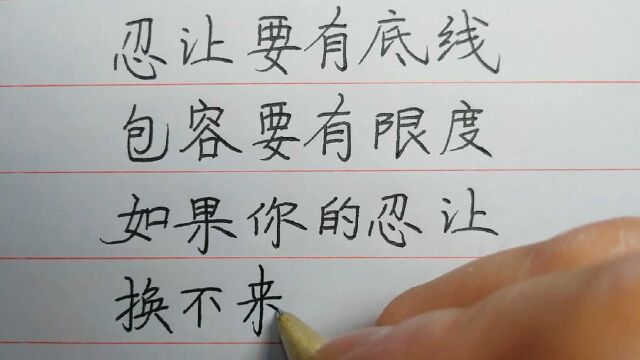 忍让要有底线
包容要有限度
如果你的忍让
换不来